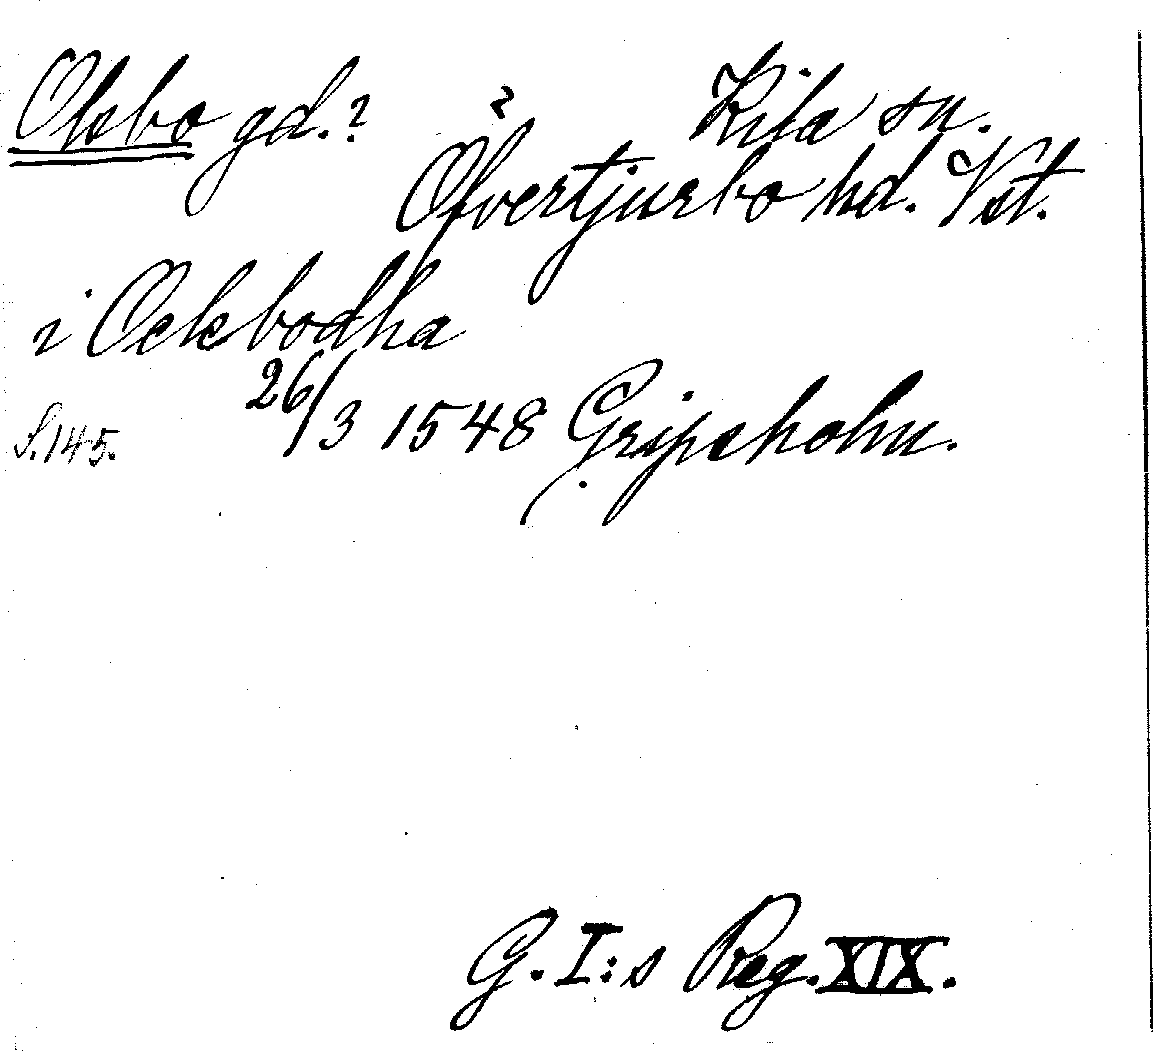 Oksbo gd.? Kila sn.
Öfvertjurbo hd. Vst.
i Ocksbodha
26/3 1548 Gripsholm.
S. 145.
G. I:s Reg. XIX.